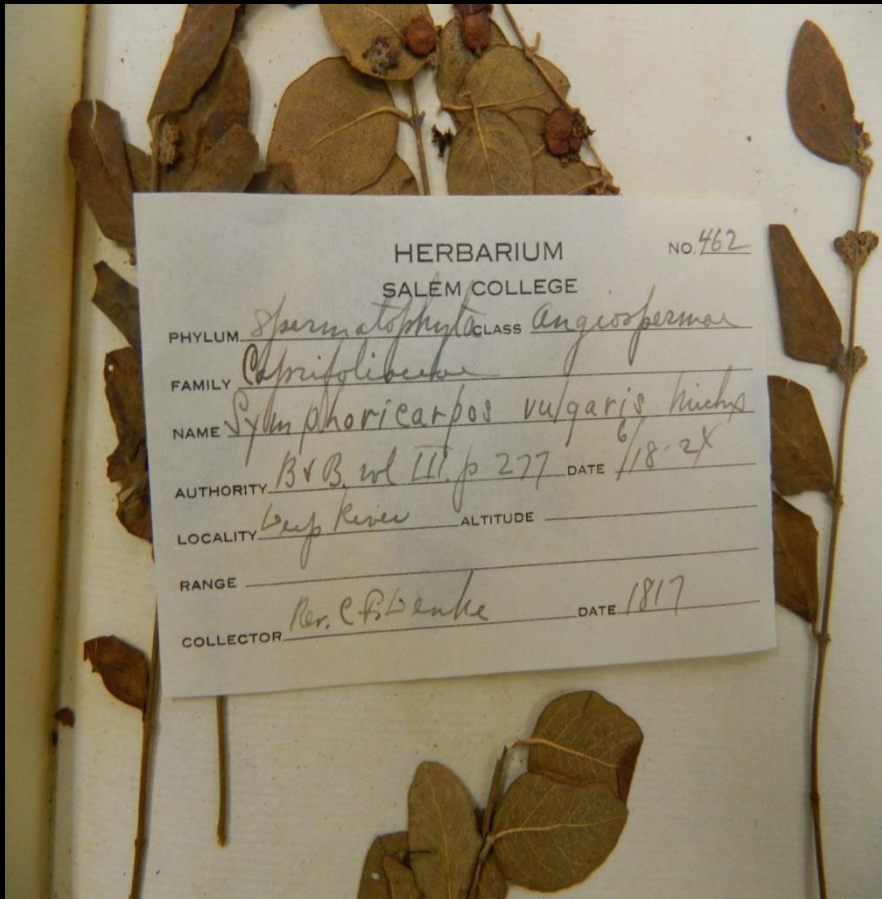 HERBARIUM NO. 462
SALEM COLLEGE
PHYLUM Spermatophyta CLASS Angiospermae
FAMILY Caprifoliaceae
NAME Symphoricarpos vulgaris Michx
AUTHORITY B & B. vol III. p 277 DATE 6/18-24
LOCALITY Deep River ALTITUDE
RANGE
COLLECTOR Rev. C. F. Denke DATE 1817